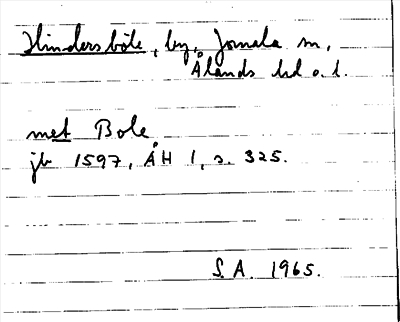 Hindersböle, by, Jomala sn,
Ålands hd o. l.
met Bole
jb 1597, ÅH 1, s. 325.
S.A. 1965.